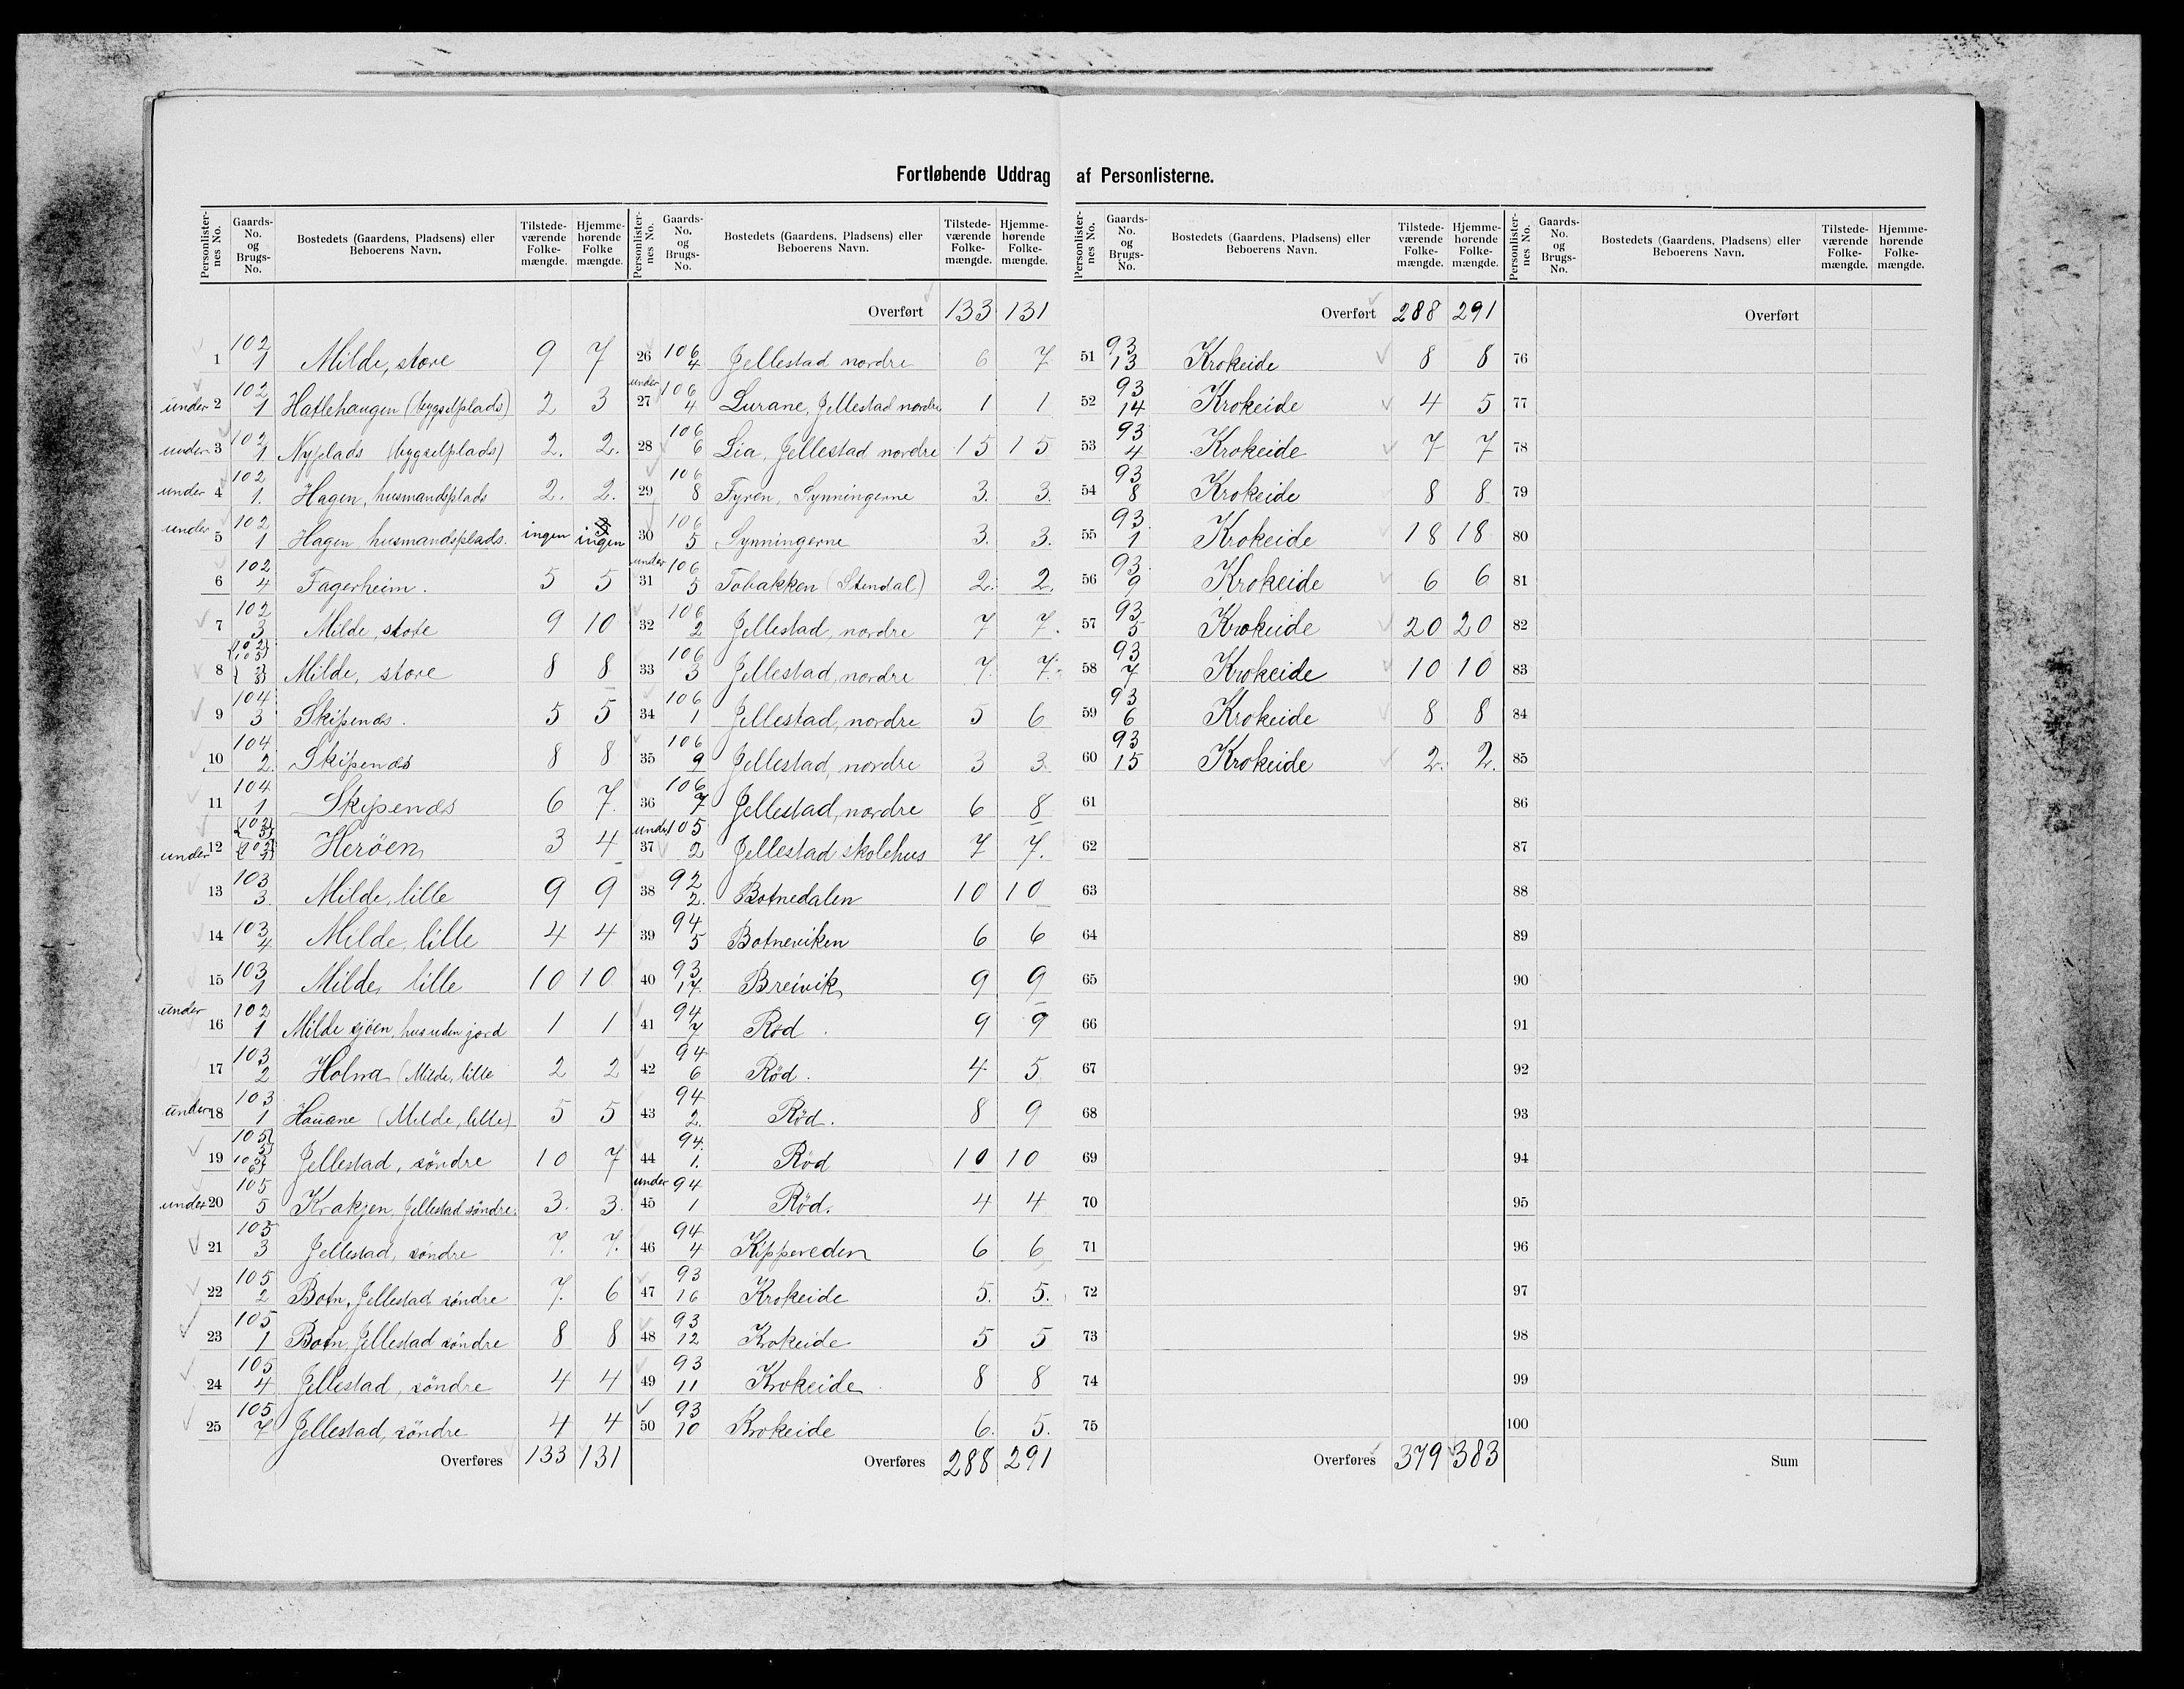 Fortløbende Uddrag af Personlisterne.
Personlisternes No. | Gaards-No. og Brugs-No. | Bostedets (Gaardens, Pladsens) eller Beboerens Navn. | Tilstedeværende Folkemængde. | Hjemmehørende Folkemængde.
1 | 102 1 | Milde, store | 9 | 7
under 2 | 102 1 | Hatlehaugen (bygselplads) | 2 | 3
under 3 | 102 1 | Nyplads (bygselplads) | 2. | 2.
under 4 | 102 1. | Hagen, husmandsplads | 2. | 2.
under 5 | 102 1 | Hagen husmandsplads. | ingen | ingen
6 | 102 4 | Fagerheim. | 5 | 5
7 | 102 3 | Milde, store | 9 | 10
8 | 102 103 | Milde, store | 8 | 8
9 | 104 3 | Skipenæs. | 5 | 5
10 | 104 2. | Skipenæs | 8 | 8
11 | 104 1 | Skipenæs | 6 | 7.
under 12 | Heröen | 3 | 4
13 | 103 3. | Milde, lille | 9 | 9
14 | 103 4 | Milde, lille | 4 | 4
15 | 103 1 | Milde, lille | 10 | 10
under 16 | 102 1 | Milde sjöen, hus uden jord | 1 | 1
17 | 103 2 | Holmа (Milde, lille | 2 | 2
under 18 | 103 1 | Hauane (Milde, lille) | 5 | 5
19 | 105 5 105 6 | Jellestad, söndre | 10 | 7
under 20 | 105 5 | Krakjen, Jellestad söndre. | 3. | 3.
21 | 105 3 | Jellestad, söndre | 7. | 7.
22 | 105 2 | Botn, Jellestad söndre | 7. | 6
23 | 105 1 | Botn, Jellestad söndre | 8 | 8
24 | 105 4 | Jellestad, söndre | 4 | 4
25 | 105 7 | Jellestad, söndre | 4 | 4
Overføres | 133 | 131
Personlisternes No. | Gaards-No. og Brugs-No. | Bostedets (Gaardens, Pladsens) eller Beboerens Navn. | Tilstedeværende Folkemængde. | Hjemmehørende Folkemængde.
Overført | 133 | 131
26 | 106 4 | Jellestad nordre | 6 | 7.
under 27 | 106 4 | Lurane, Jellestad nordre | 1 | 1
28 | 106 6 | Lia, Jellestad nordre | 15 | 15
29 | 106 8 | Fyren, Synningerne | 3. | 3.
30 | 106 5 | Synningerne | 3. | 3.
under 31 | 106 5 | Tobakken (Stendal) | 2. | 2.
32 | 106 2 | Jellestad, nordre | 7 | 7.
33 | 106 3 | Jellestad, nordre | 7. | 7.
34 | 106 1 | Jellestad, nordre | 5 | 6
35 | 106 9 | Jellestad, nordre | 3 | 3.
36 | 106 7 | Jellestad, nordre | 6 | 8
under 37 | 105 2 | Jellestad skolehus | 7 | 7.
38 | 92 2. | Botnedalen | 10 | 10
39 | 94 5 | Botneviken | 6 | 6
40 | 93 17. | Breivik | 9 | 9
41 | 94 7 | Rød. | 9 | 9
42 | 94 6 | Rød. | 4 | 5
43 | 94 2. | Rød. | 8 | 9
44 | 94. 1. | Rød | 10 | 10
under 45 | 94 1 | Rød. | 4 | 4
46 | 94 4 | Kipperveden | 6 | 6
47 | 93 16 | Krokeide | 5. | 5.
48 | 93 12 | Krokeide | 5 | 5
49 | 93 11 | Krokeide | 8 | 8
50 | 93 10 | Krokeide | 6. | 5.
Overføres | 288 | 291
Personlisternes No. | Gaards-No. og Brugs-No. | Bostedets (Gaardens, Pladsens) eller Beboerens Navn. | Tilstedeværende Folkemængde. | Hjemmehørende Folkemængde.
Overført | 288 | 291
51 | 93 13 | Krokeide | 8 | 8
52 | 93 14 | Krokeide | 4 | 5
53 | 93 4 | Krokeide | 7 | 7
54 | 93 8 | Krokeide | 8 | 8
55 | 93 1 | Krokeide | 18 | 18
56 | 93 9 | Krokeide | 6 | 6
57 | 93 5 | Krokeide | 20 | 20
58 | 93 7 | Krokeide | 10 | 10
59 | 93 6 | Krokeide | 8 | 8
60 | 93 15 | Krokeide | 2. | 2.
61
62
63
64
65
66
67
68
69
70
71
72
73
74
75
Overføres | 379 | 383
Personlisternes No. | Gaards-No. og Brugs-No. | Bostedets (Gaardens, Pladsens) eller Beboerens Navn. | Tilstedeværende Folkemængde. | Hjemmehørende Folkemængde.
Overført
76
77
78
79
80
81
82
83
84
85
86
87
88
89
90
91
92
93
94
95
96
97
98
99
100
Sum